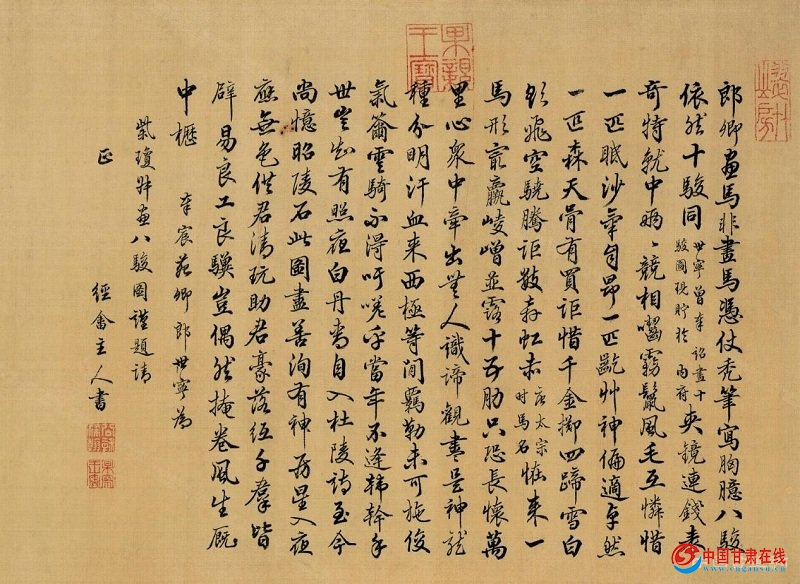 郎卿畫馬非畫馬憑仗禿筆寫胸臆八駿
依然十駿同
世寧曾奉詔畫十
駿圖現貯於內府
夾鏡連錢表
奇特就中競相嚙霧鬣風毛互憐惜
一匹眠沙氣自昂一匹齕艸神偏適卓然
一匹森天骨有買詎惜千金擲四蹄雪白
飛空驍騰詎數奔虹赤
唐太宗
時馬名
怪來一
馬形羸崚嶒並露十五肋只恐長懷萬
里心衆中牽出無人識諦觀盡是神龍
種分明汗血來西極等閒羈勒未可施俊
氣籋雲騎不得吁嗟乎當年不逢韓幹手
世豈知有照夜白丹青自入杜陵詩至今
尚憶昭陵石此圖盡善洵有神房星入夜
應無色供君清玩助君豪落紙千羣皆
辟易良工良驥豈偶然掩卷風生厩
中櫪
奉宸苑卿郎世寧為
紫瓊畫八駿圖謹題請
正
經畬主人書
果親王寶
中国甘肃在线
www.cngansu.cn